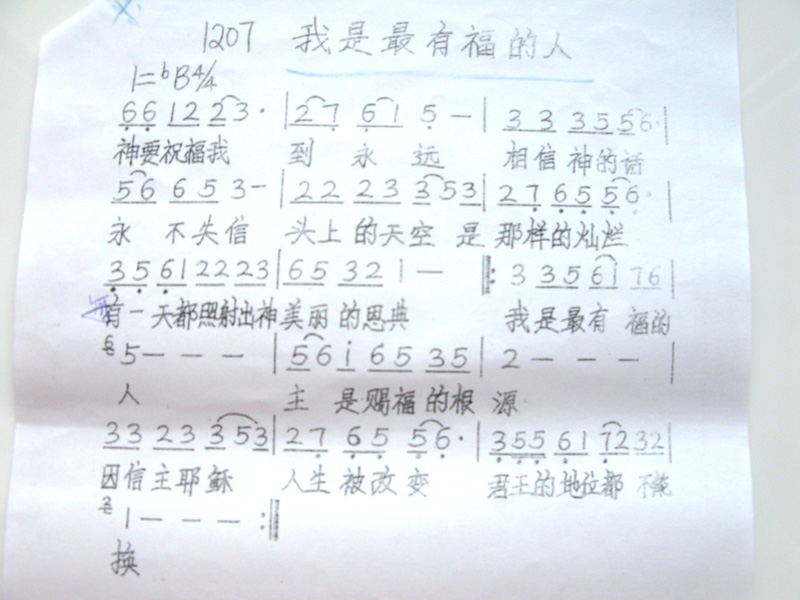 1207 我是最有福的人
1=ᵇB4/4
66 12 23· | 27 61 5 — | 33 35 56· |
神要祝福我 到永远 相信神的话
56 65 3— | 22 23 353 | 27 65 56· |
永不失信 头上的天空是那样的灿烂
35 61 22 23 | 65 32 1 — ‖: 3 35 61 76 |
有一天都照射出神美丽的恩典 我是最有福的
5 — — — | 56 i 65 35 | 2 — — — |
人 主是赐福的根源
33 23 353 | 27 65 56· | 355 61 72 32 |
因信主耶稣 人生被改变 君王的地位都不能
1 — — — :‖
换